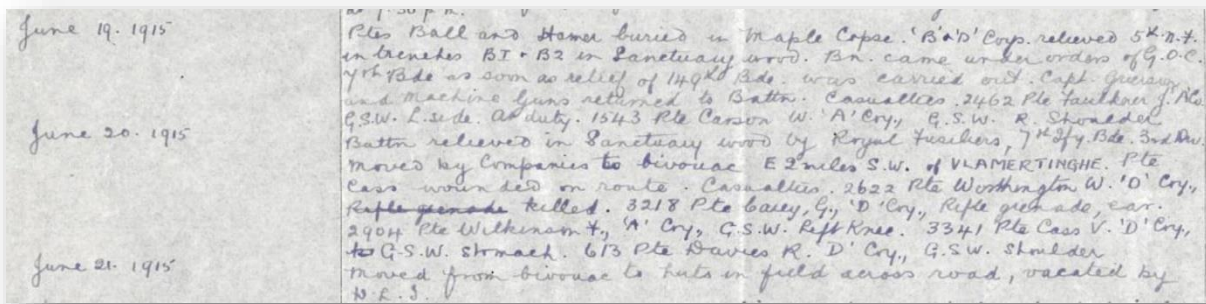 at 7.30 p.m.
June 19. 1915 Ptes Ball and Hamer buried in Maple Copse. 'B'&'D' Coys. relieved 5th N.F.
in trenches B1 & B2 in Sanctuary wood. Bn. came under orders of G.O.C.
7th Bde as soon as relief of 149th Bde. was carried out. Capt.
and Machine Guns returned to Battn. Casualties. 2462 Pte Faulkner J. 'A' Co
G.S.W. L. side. At duty. 1543 Pte Carson W. 'A' Coy., G.S.W. R. Shoulder
June 20. 1915 Battn relieved in Sanctuary wood by Royal Fusiliers, 7th Ify. Bde. 3rd Div.
Moved by Companies to bivouac E 2 miles S.W. of VLAMERTINGHE. Pte
Cass wounded on route. Casualties. 2622 Pte Worthington W. 'D' Coy.,
Rifle grenade killed. 3218 Pte Casey, G., 'D' Coy., Rifle grenade, ear.
2904 Pte Wilkinson T., 'A' Coy., G.S.W. Left Knee. 3341 Pte Cass V. 'D' Coy.,
G.S.W. Stomach. 613 Pte Davies R. D' Coy., G.S.W. Shoulder
June 21. 1915 Moved from bivouac to huts in field across road, vacated by
D.L.I.